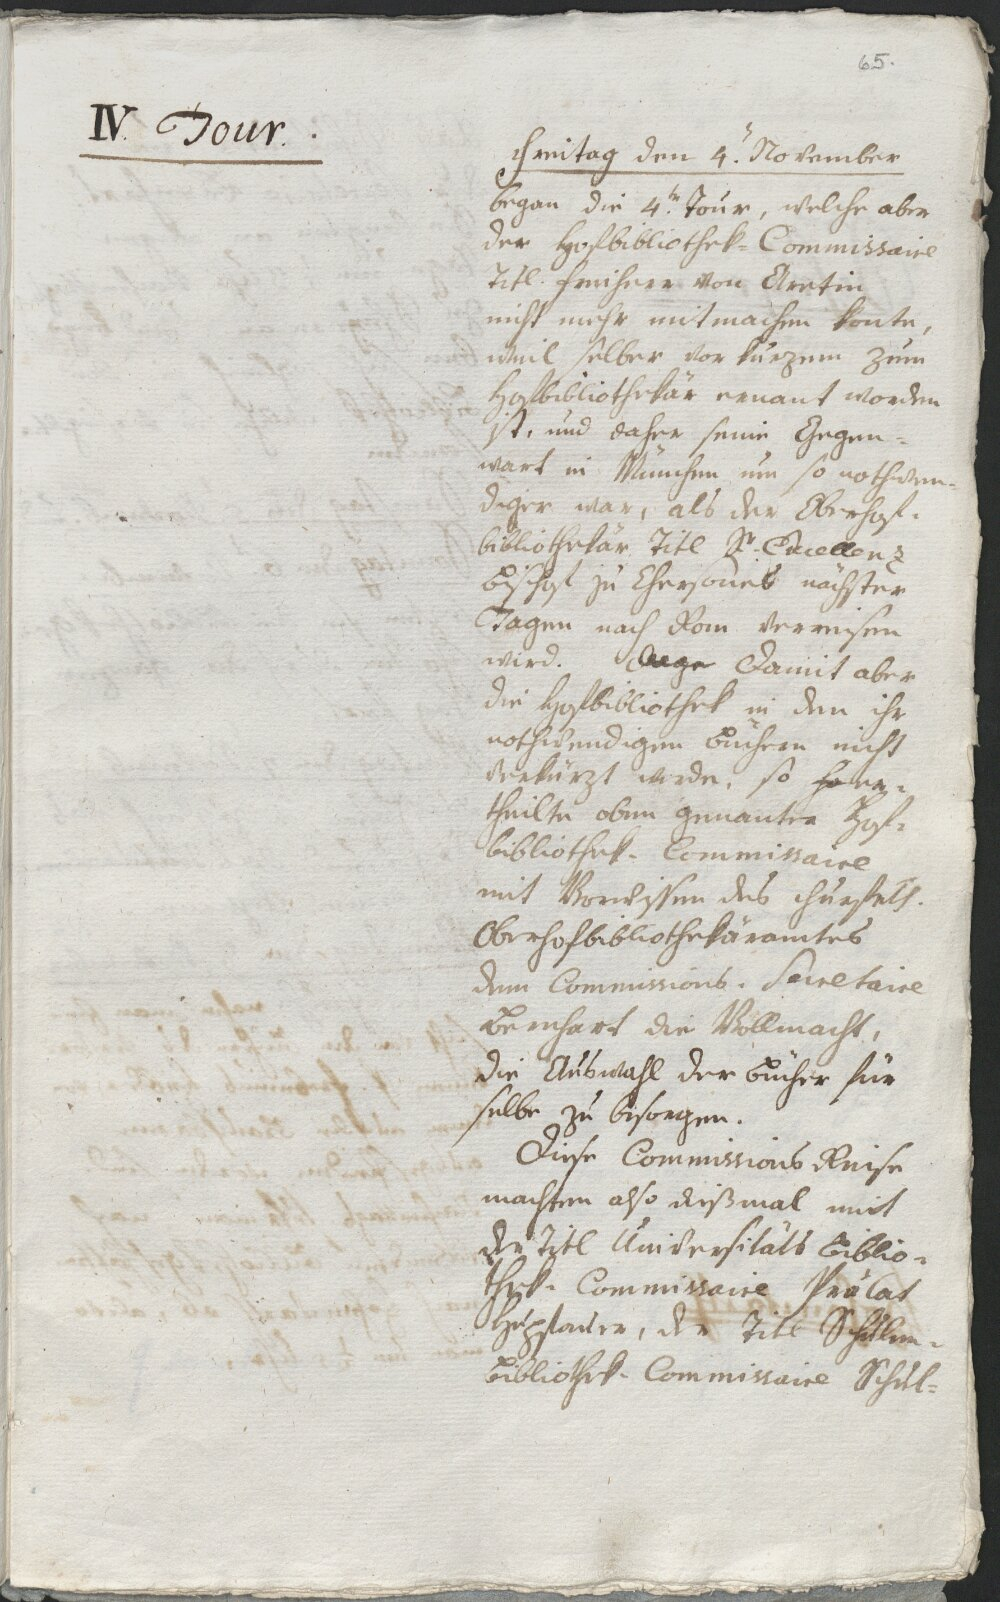 65.
IV. Tour.
Freitag den 4. November
began die 4te Tour, welche aber
der Hofbibliothek-Commissaire
Titl. Freiherr von Aretin
nicht mehr mitmachen konte,
weil selber vor kurzem zum
Hofbibliothekär ernant worden
ist, und daher seine Gegen-
wart in München um so nothwen-
diger war, als der Oberhof-
bibliothekär Titl Sr. Excellenz
Bischof zu Chersones nächster
Tagen nach Rom verreisen
wird. Damit aber
die Hofbibliothek in den ihr
nothwendigen Büchern nicht
verkürzt werde, so er-
theilte oben genanter Hof-
bibliothek-Commissaire
mit Vorwissen des churfstl.
Oberhofbibliothekäramtes
dem Commissions-Secretaire
Bernhart die Vollmacht,
die Auswahl der Bücher für
selbe zu besorgen.
Diese Commissions Reise
machten also dießmal mit
der Titl Universitäts Biblio-
thek-Commissaire Prälat
Hupfauer, der Titl Schulen-
Bibliothek-Commissaire Schul-